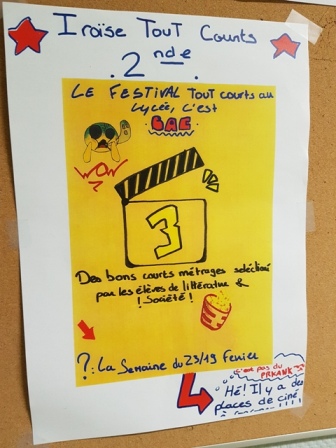 Iroïse TouT Counts
2 nde
LE FESTIVAL TOUT courts au
Lycée, C'est
BAC
WOW
3
Des bons courts métrages sélectionnés
par les élèves de littérature &
! Société !
? : La Semaine du 23/19 Fevrier
C'est pas du
PRKANK
Hé! Il y a des
places de ciné